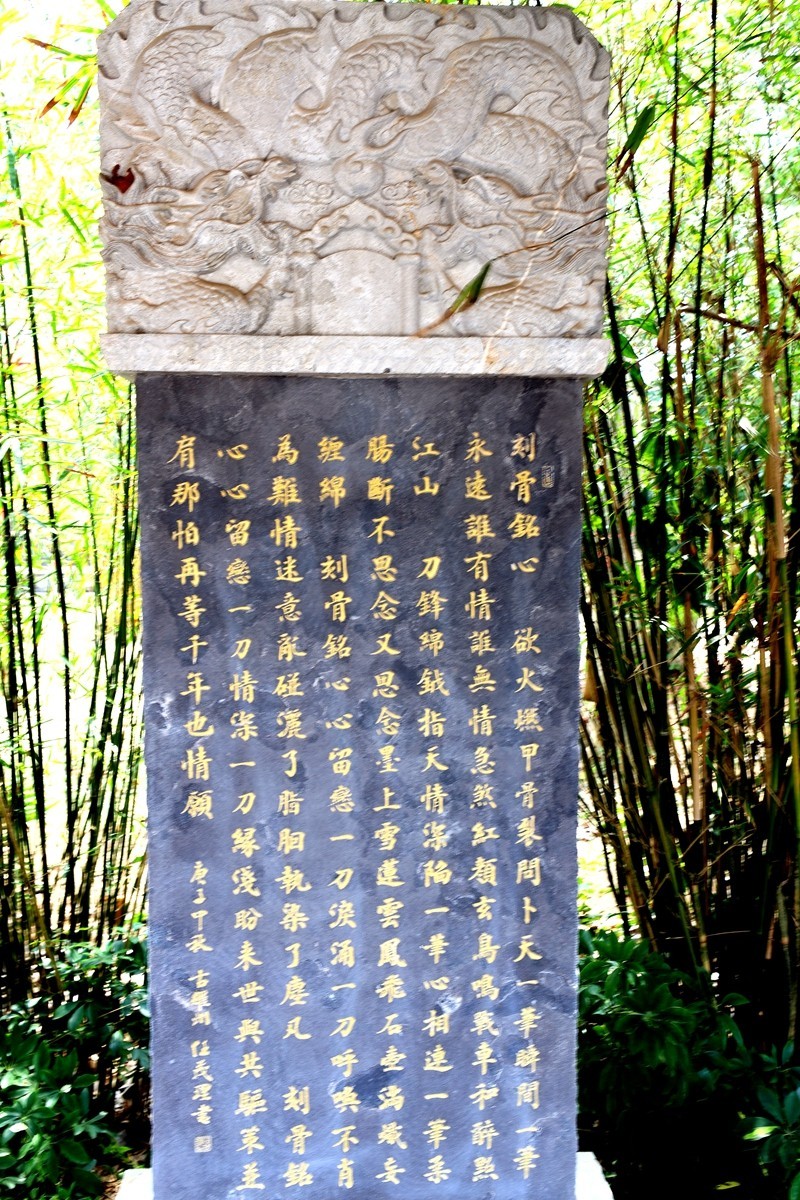 刻骨銘心　欲火燃甲骨裂問卜天一筆瞬間一筆
永遠誰有情誰無情急煞紅顏玄鳥鳴戰車和醉點
江山　刀鋒綿鉞指天情深陷一筆心相連一筆柔
腸斷不思念又思念墨上雪蓮雲鳳飛石壺
纏綿　刻骨銘心心留戀一刀淚涌一刀呼喚不肯
為難情迷意亂碰灑了脂胭執染了塵凡　刻骨銘
心心留戀一刀情深一刀緣淺盼來世與共驅策並
肩那怕再等千年也情願
庚子甲秋　任茂理書